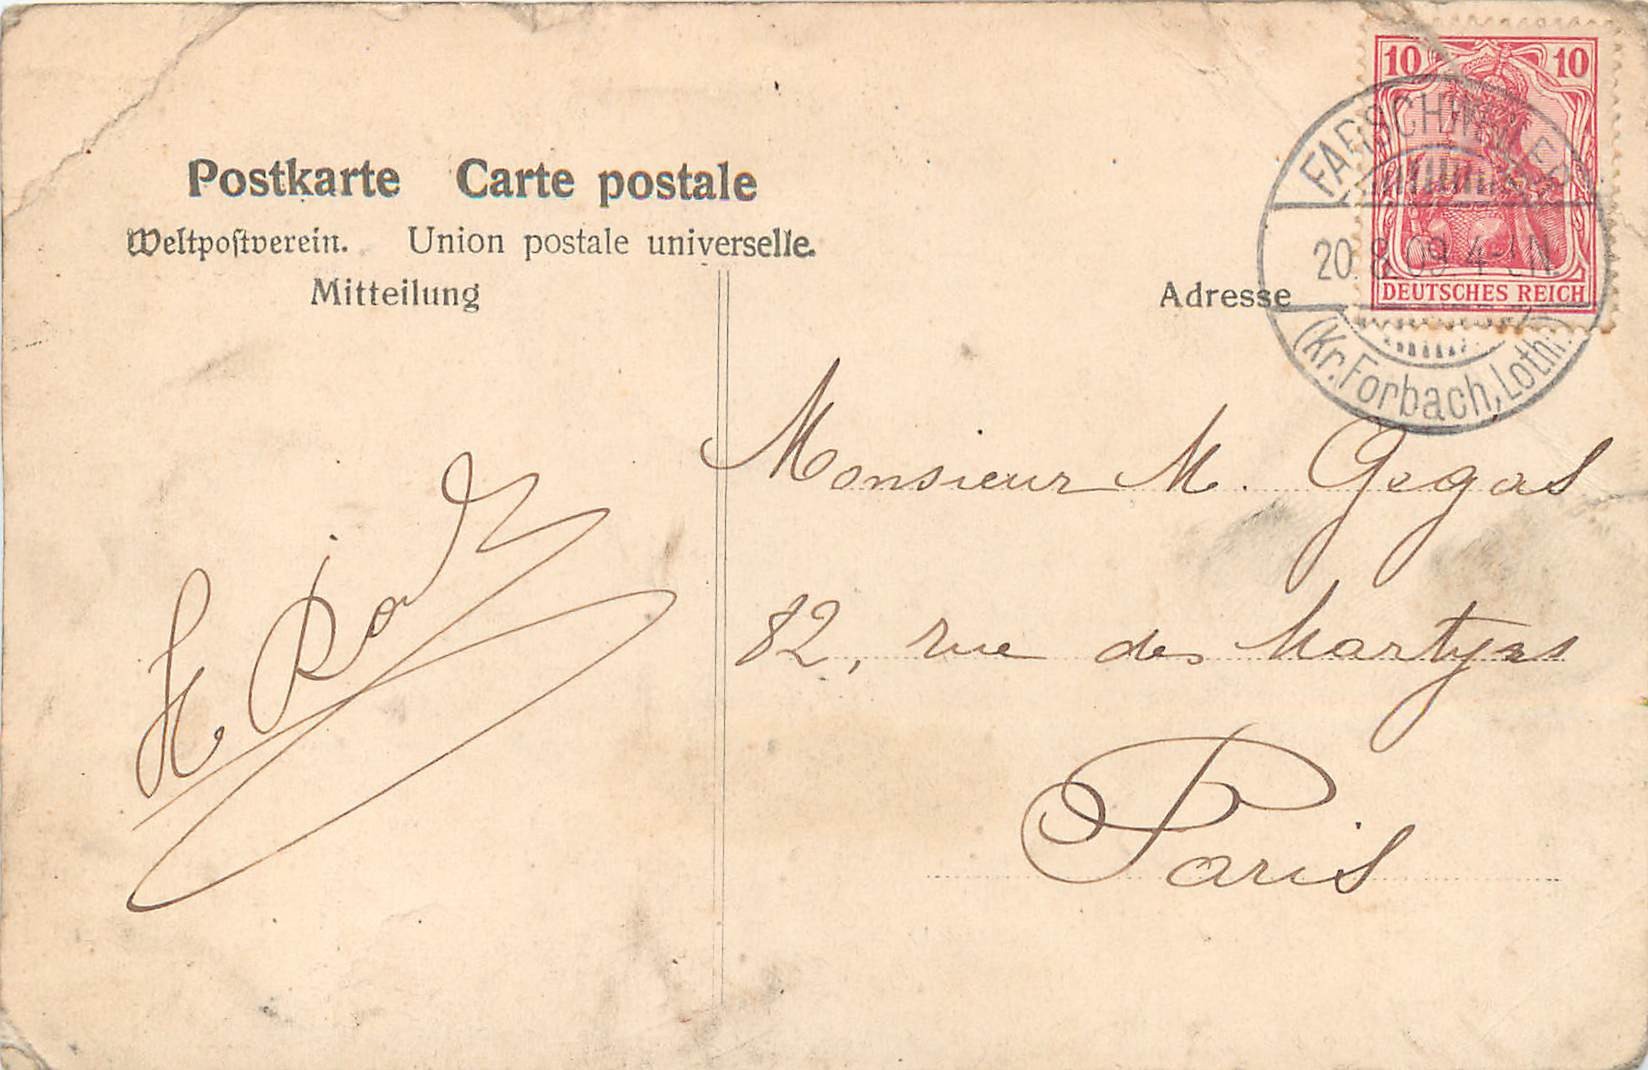 Postkarte Carte postale
Weltpostverein. Union postale universelle.
Mitteilung
Adresse
10 10
DEUTSCHES REICH
FARSCHWEILER
20.8.09. 4-5N.
(Kr. Forbach, Lothr.)
Monsieur M. Gegas
82, rue des Martyrs
Paris